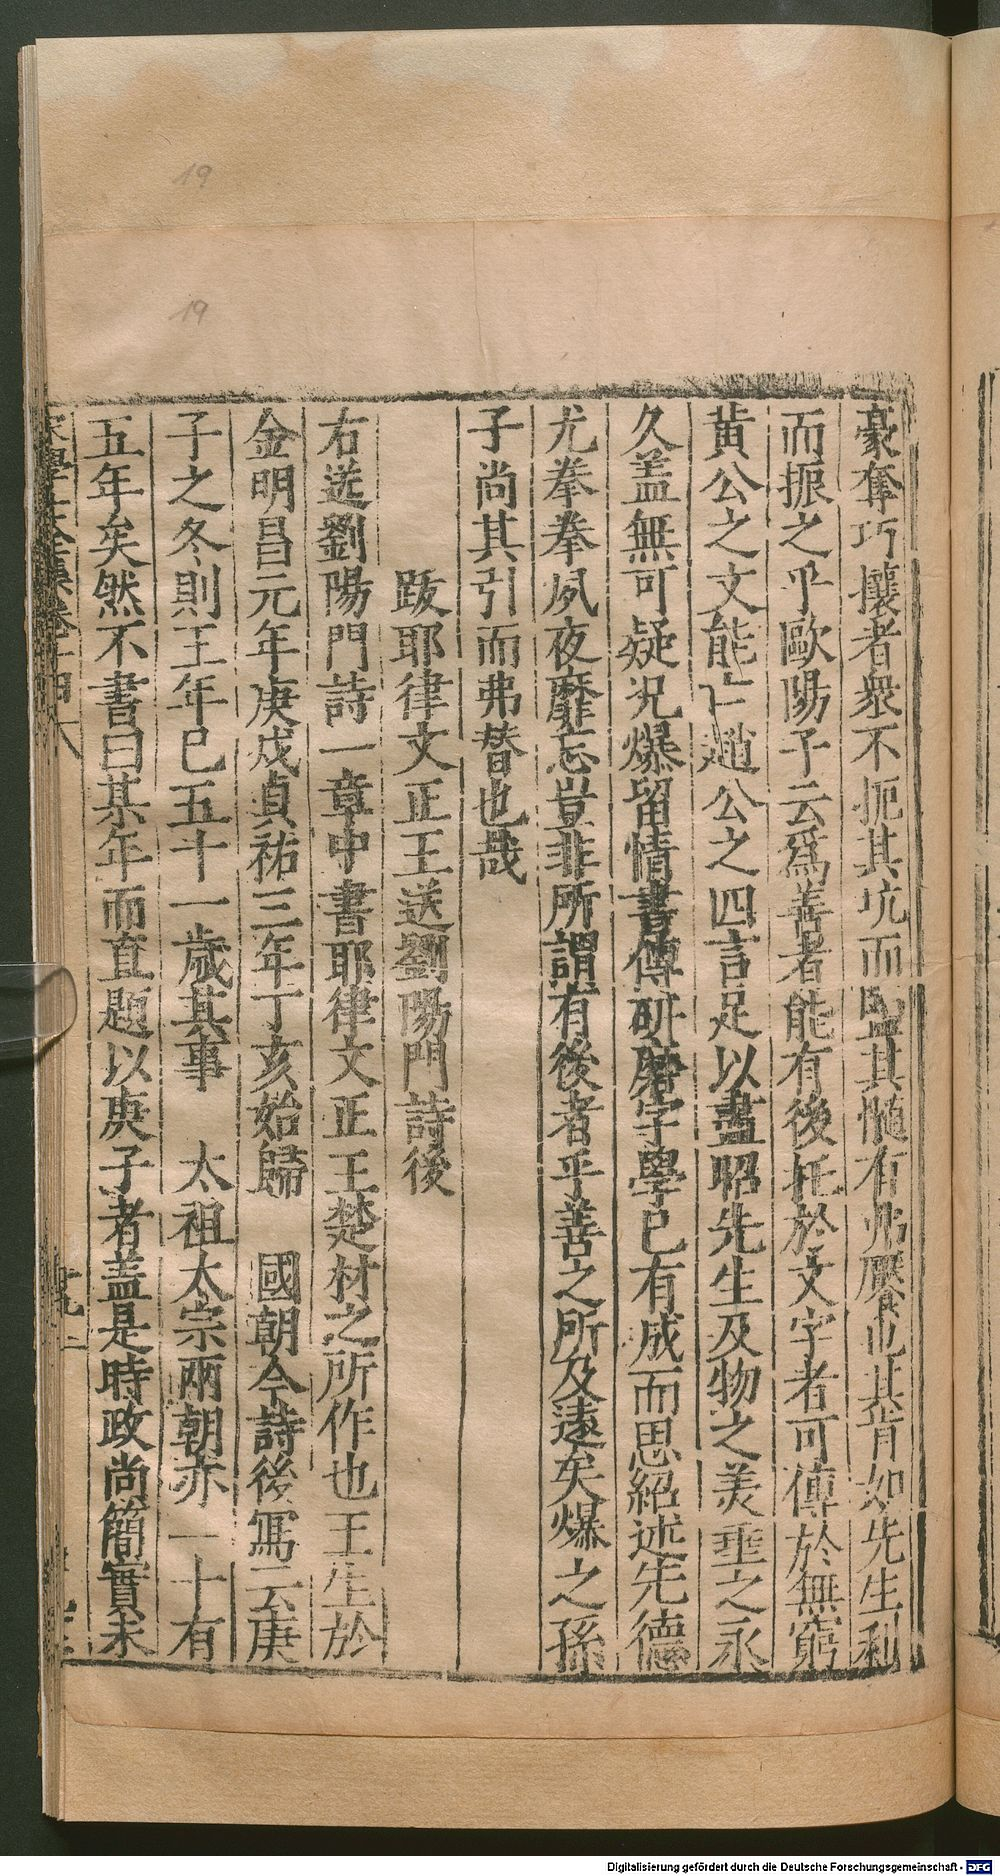 豪奪巧攘者衆不扼其坑而盬其髓有弗饜也其肯如先生利
而振之乎歐陽子云爲善者能有後托於文字者可傳於無窮
黄公之文能亡趙公之四言足以盡昭先生及物之羙垂之永
久盖無可疑况爆留情書傳研磨字學已有成而思紹述先德
尤拳拳夙夜靡忘豈非所謂有後者乎善之所及遠矣爆之孫
子尚其引而弗替也哉
跋耶律文正王送劉陽門詩後
右送劉陽門詩一章中書耶律文正王楚材之所作也王生於
金明昌元年庚戍貞祐三年丁亥始歸　國朝今詩後寫云庚
子之冬則王年已五十一歲其事　太祖太宗兩朝亦一十有
五年矣然不書曰某年而直題以庚子者盖是時政尚簡實未
宋學士全集卷十四
19
19
Digitalisierung gefördert durch die Deutsche Forschungsgemeinschaft - DFG